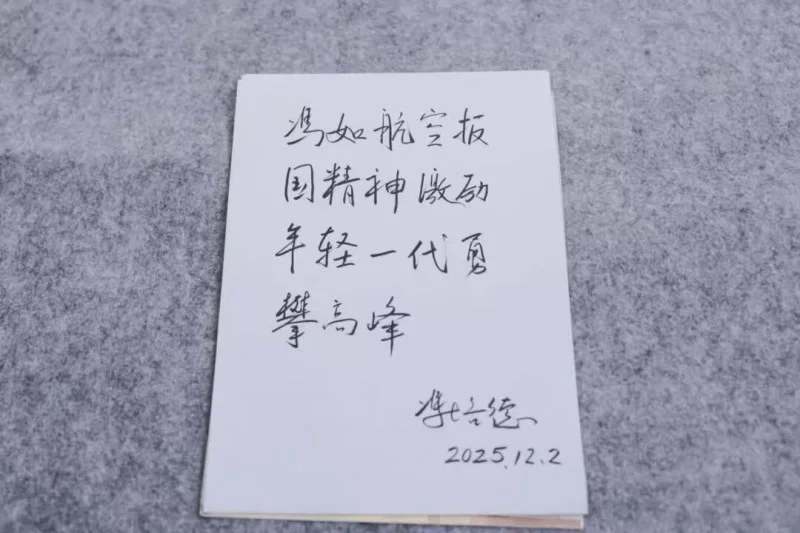 冯如航空报
国精神激励
年轻一代勇
攀高峰
冯培德
2025.12.2